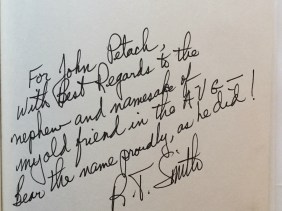 For John Petach,
With Best Regards to the
nephew and namesake of
my old friend in the AVG —
Bear the name proudly, as he did!
R.T. Smith